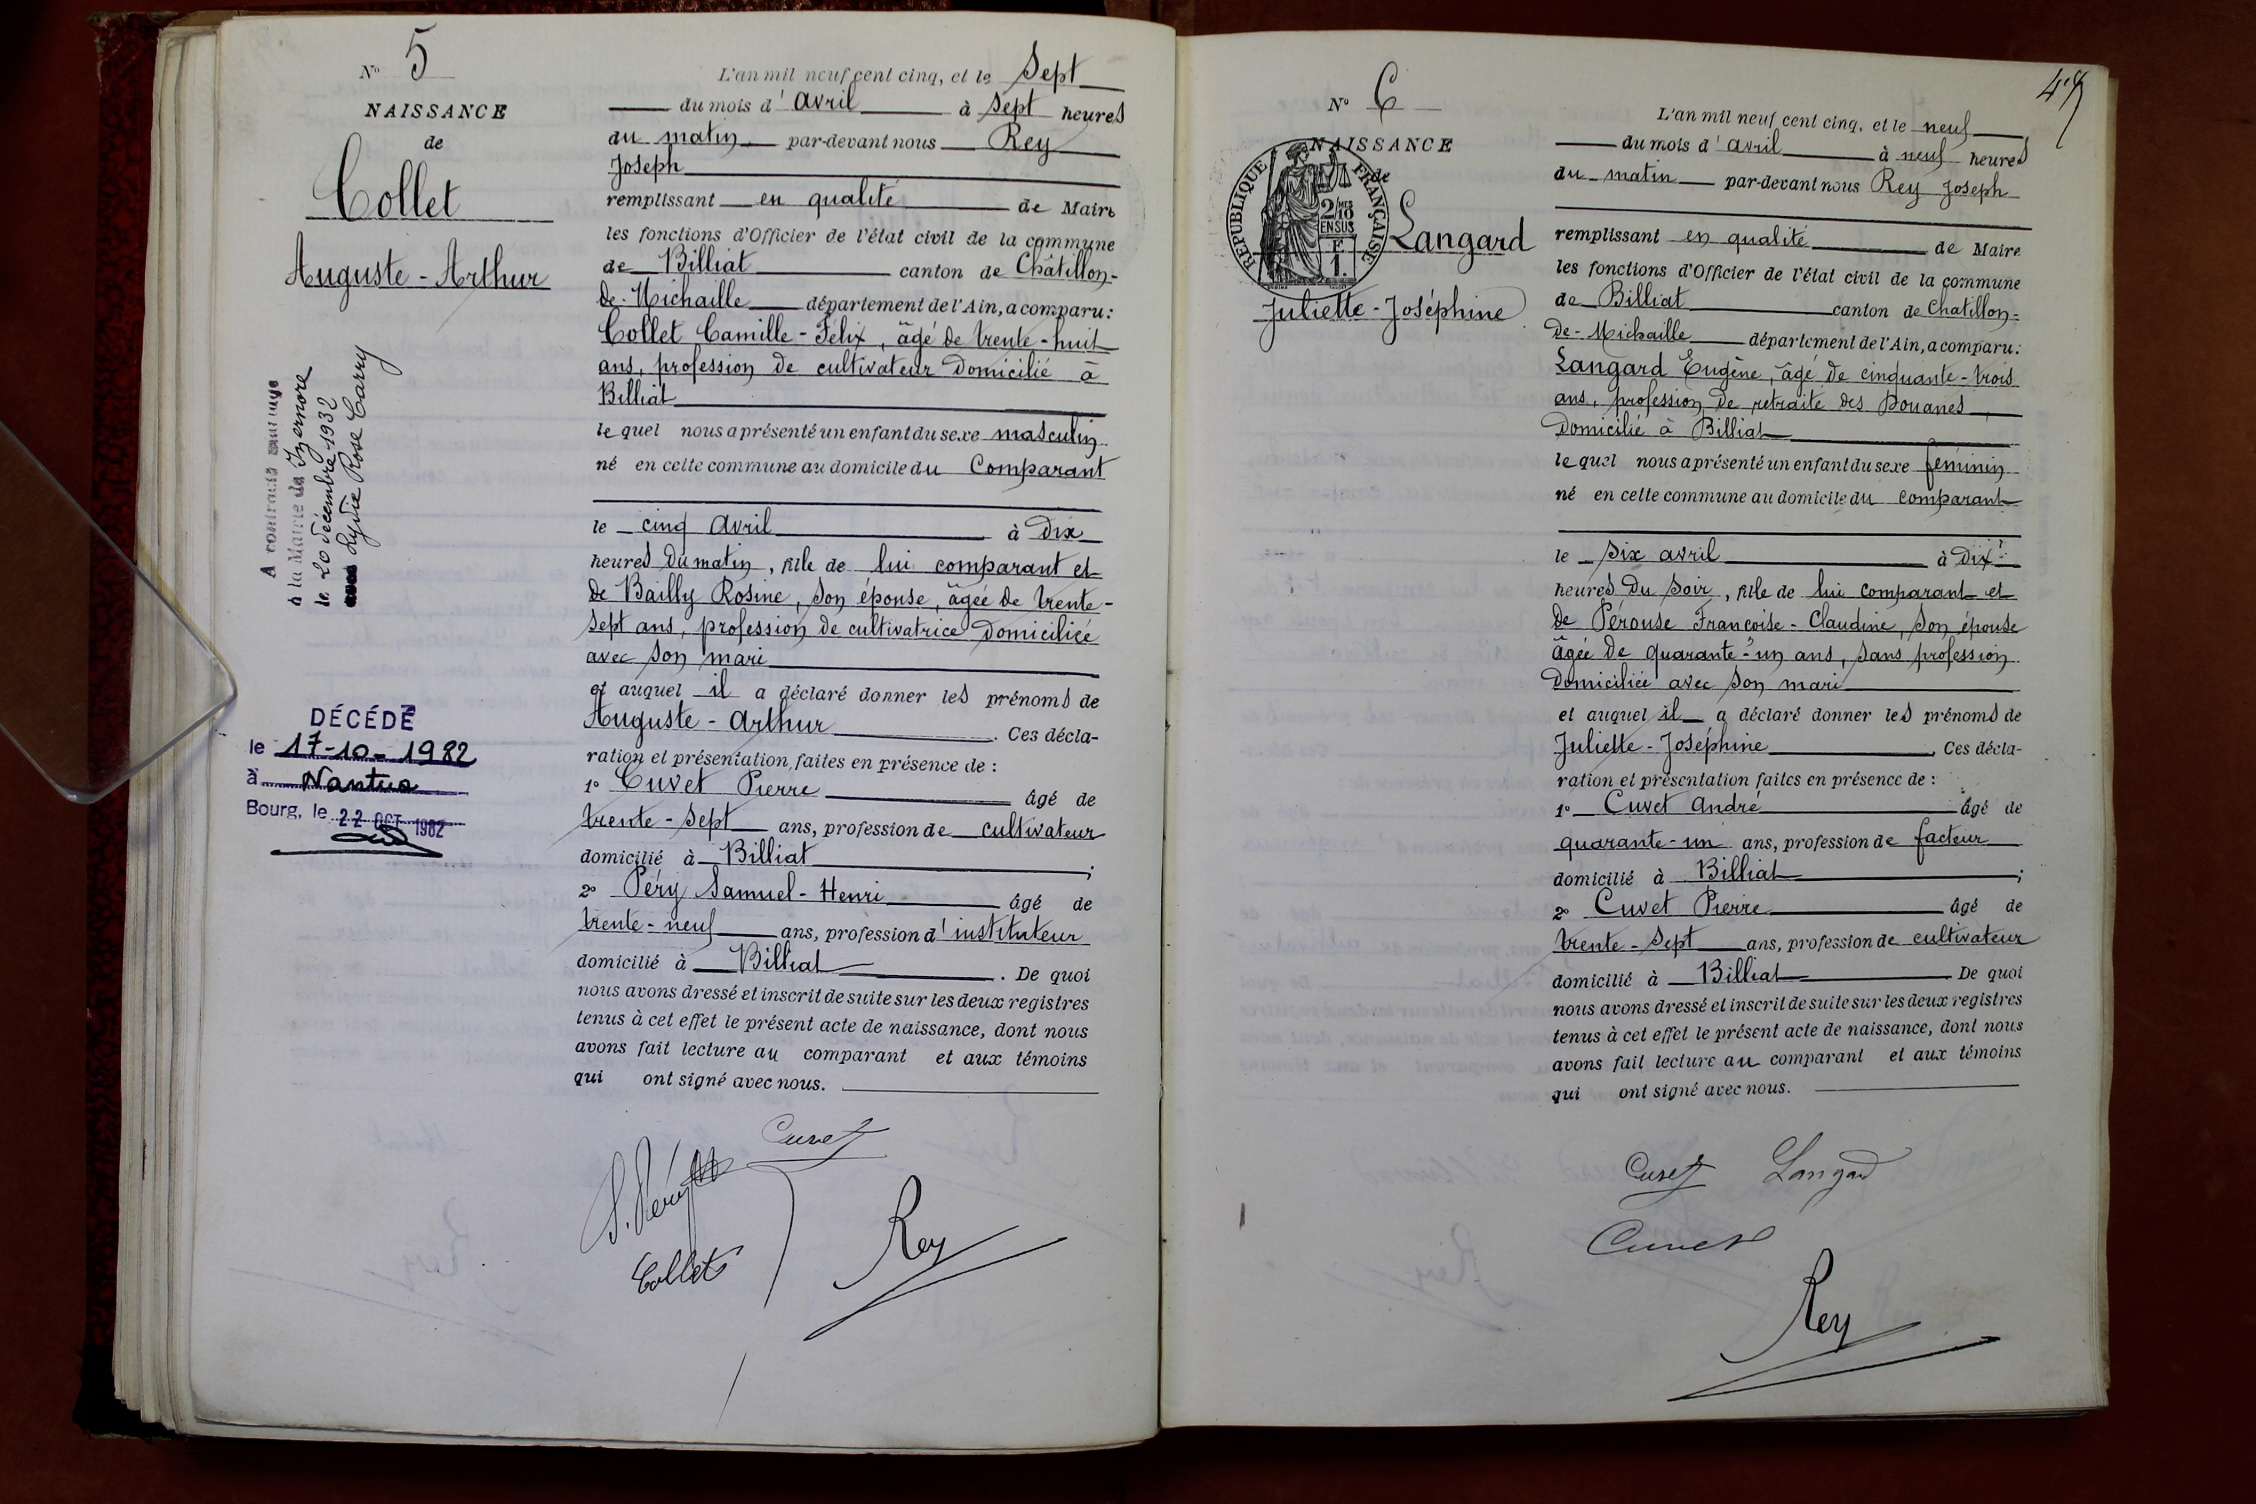 N° 5
NAISSANCE
de
Collet
Auguste - Arthur
A contracté mariage
à la Mairie de Izernore
le 20 Décembre 1932
avec Lydie Rose Carry
DÉCÉDÉ
le 17-10-1982
à Nantua
Bourg, le 22 OCT 1982
L'an mil neuf cent cinq, et le sept
du mois d'avril à sept heures
du matin par-devant nous Rey
Joseph
remplissant en qualité de Maire
les fonctions d'Officier de l'état civil de la commune
de Billiat canton de Châtillon-
de-Michaille département de l'Ain, a comparu:
Collet Camille-Félix, âgé de trente-huit
ans, profession de cultivateur domicilié à
Billiat
lequel nous a présenté un enfant du sexe masculin
né en cette commune au domicile du comparant
le cinq avril à dix
heures du matin, fils de lui comparant et
de Bailly Rosine, son épouse, âgée de trente-
sept ans, profession de cultivatrice domiciliée
avec son mari
et auquel il a déclaré donner les prénoms de
Auguste-Arthur. Ces décla-
ration et présentation, faites en présence de:
1° Cuvet Pierre âgé de
trente-sept ans, profession de cultivateur
domicilié à Billiat;
2° Péry Samuel-Henri âgé de
trente-neuf ans, profession d'instituteur
domicilié à Billiat. De quoi
nous avons dressé et inscrit de suite sur les deux registres
tenus à cet effet le présent acte de naissance, dont nous
avons fait lecture au comparant et aux témoins
qui ont signé avec nous.
Cuvet
S. Péry
Collet
Rey
N° 6
NAISSANCE
de
RÉPUBLIQUE FRANÇAISE
2/10 MES
EN SUS
F.
1.
Langard
Juliette-Joséphine
L'an mil neuf cent cinq, et le neuf
du mois d'avril à neuf heures
du matin par-devant nous Rey Joseph
remplissant en qualité de Maire
les fonctions d'Officier de l'état civil de la commune
de Billiat canton de Chatillon-
de-Michaille département de l'Ain, a comparu:
Langard Eugène, âgé de cinquante-trois
ans, profession de retraité des Douanes,
domicilié à Billiat
lequel nous a présenté un enfant du sexe féminin
né en cette commune au domicile du comparant
le six avril à dix
heures du soir, fille de lui comparant et
de Pérouse Françoise-Claudine, son épouse
âgée de quarante-un ans, sans profession
domiciliée avec son mari
et auquel il a déclaré donner les prénoms de
Juliette-Joséphine. Ces décla-
ration et présentation faites en présence de:
1° Cuvet André âgé de
quarante-un ans, profession de facteur
domicilié à Billiat;
2° Cuvet Pierre âgé de
trente-sept ans, profession de cultivateur
domicilié à Billiat. De quoi
nous avons dressé et inscrit de suite sur les deux registres
tenus à cet effet le présent acte de naissance, dont nous
avons fait lecture au comparant et aux témoins
qui ont signé avec nous.
Cuvet Langard
Cuvet
Rey